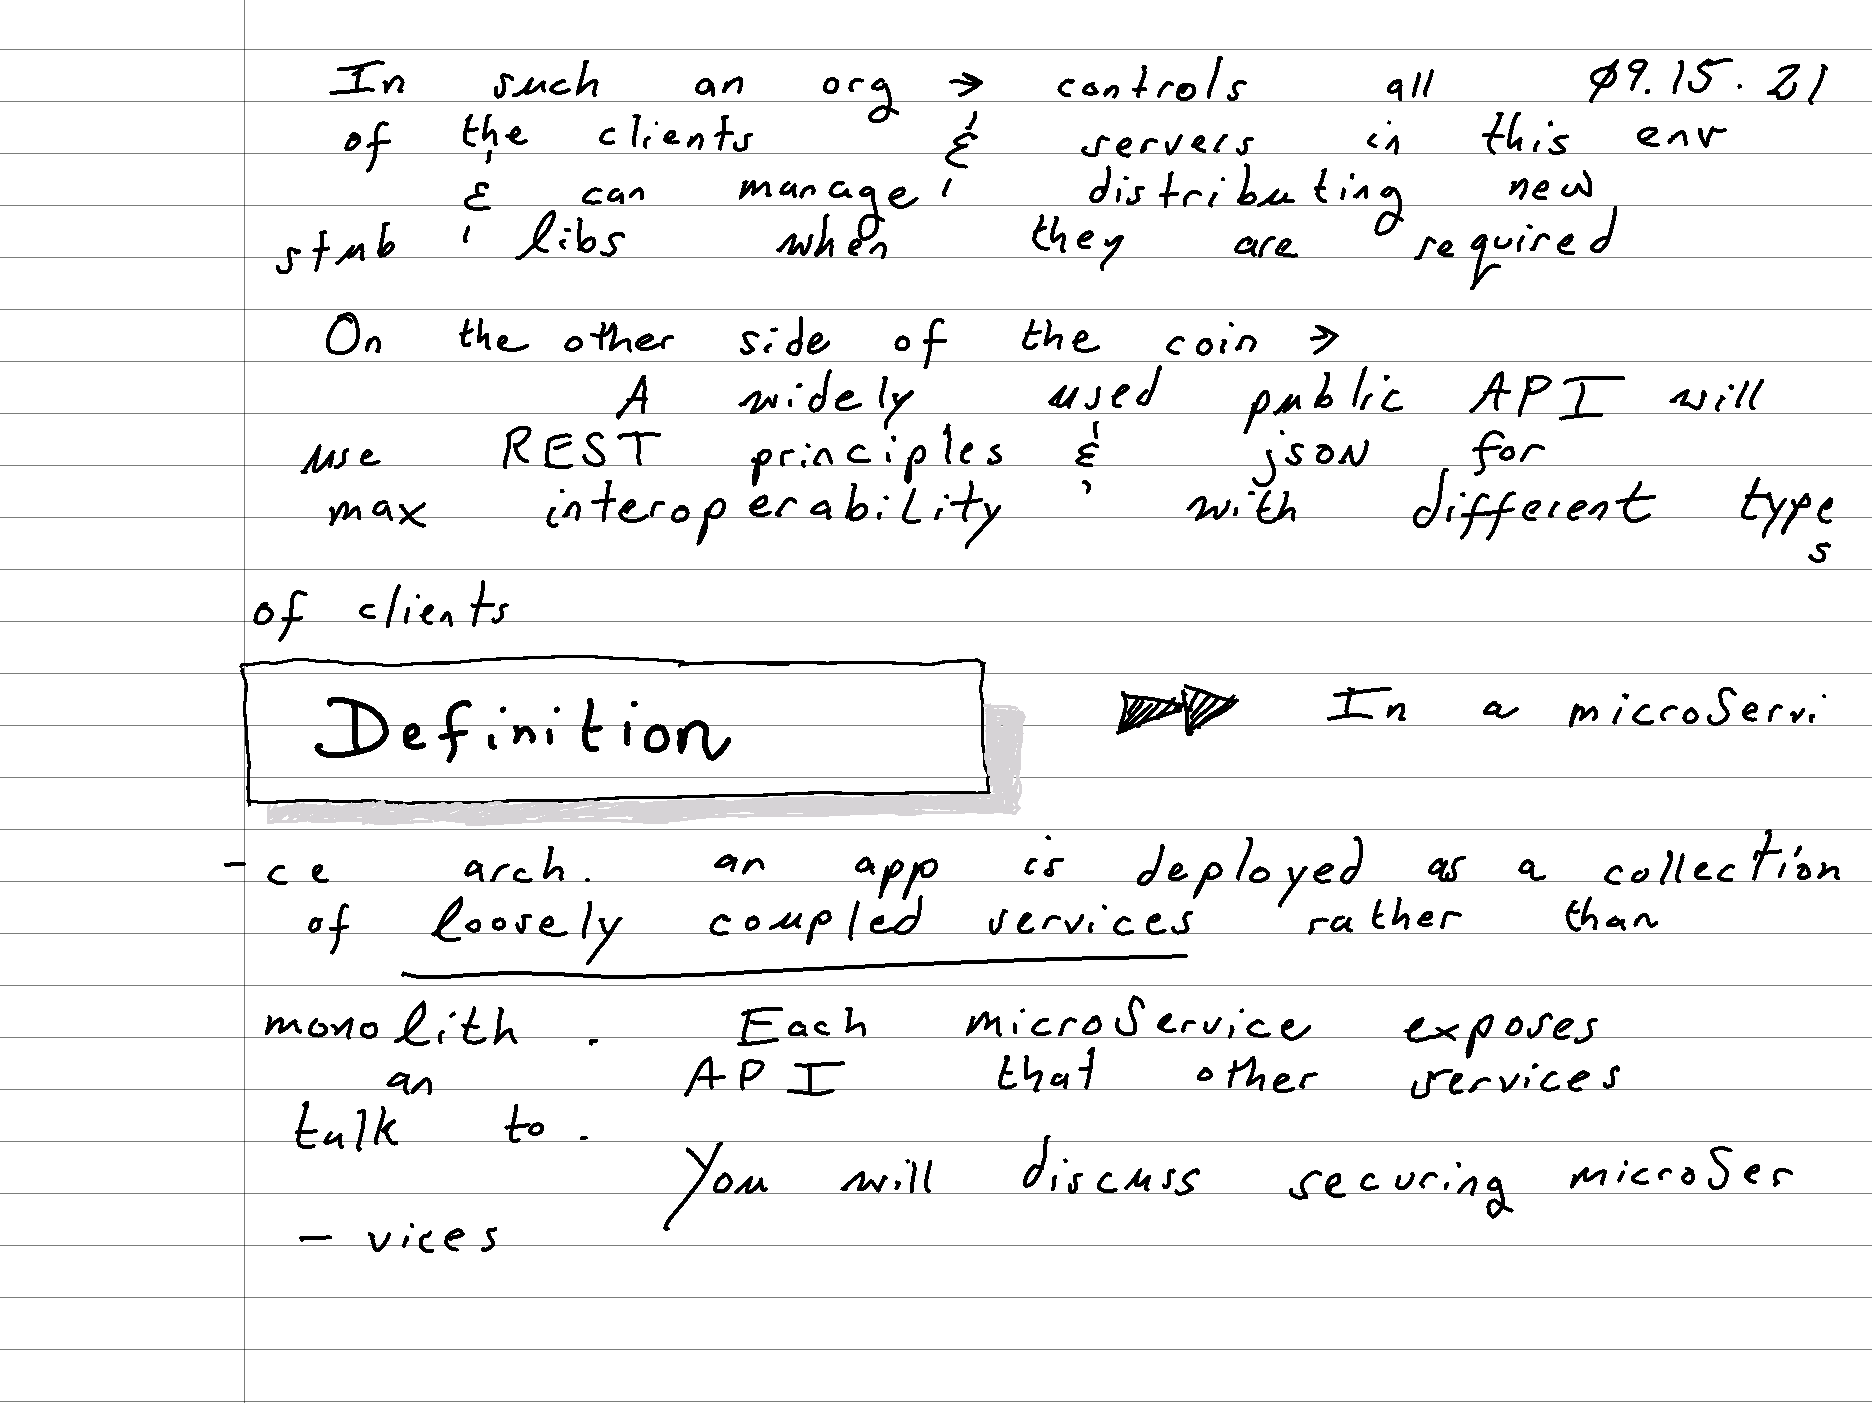 In such an org → controls all 09.15.21
of the clients & servers in this env
& can manage distributing new
stub libs when they are required
On the other side of the coin →
A widely used public API will
use REST principles & json for
max interoperability with different types
of clients
Definition In a microServi
-ce arch. an app is deployed as a collection
of loosely coupled services rather than
monolith. Each microService exposes
an API that other services
talk to.
You will discuss securing microSer
- vices